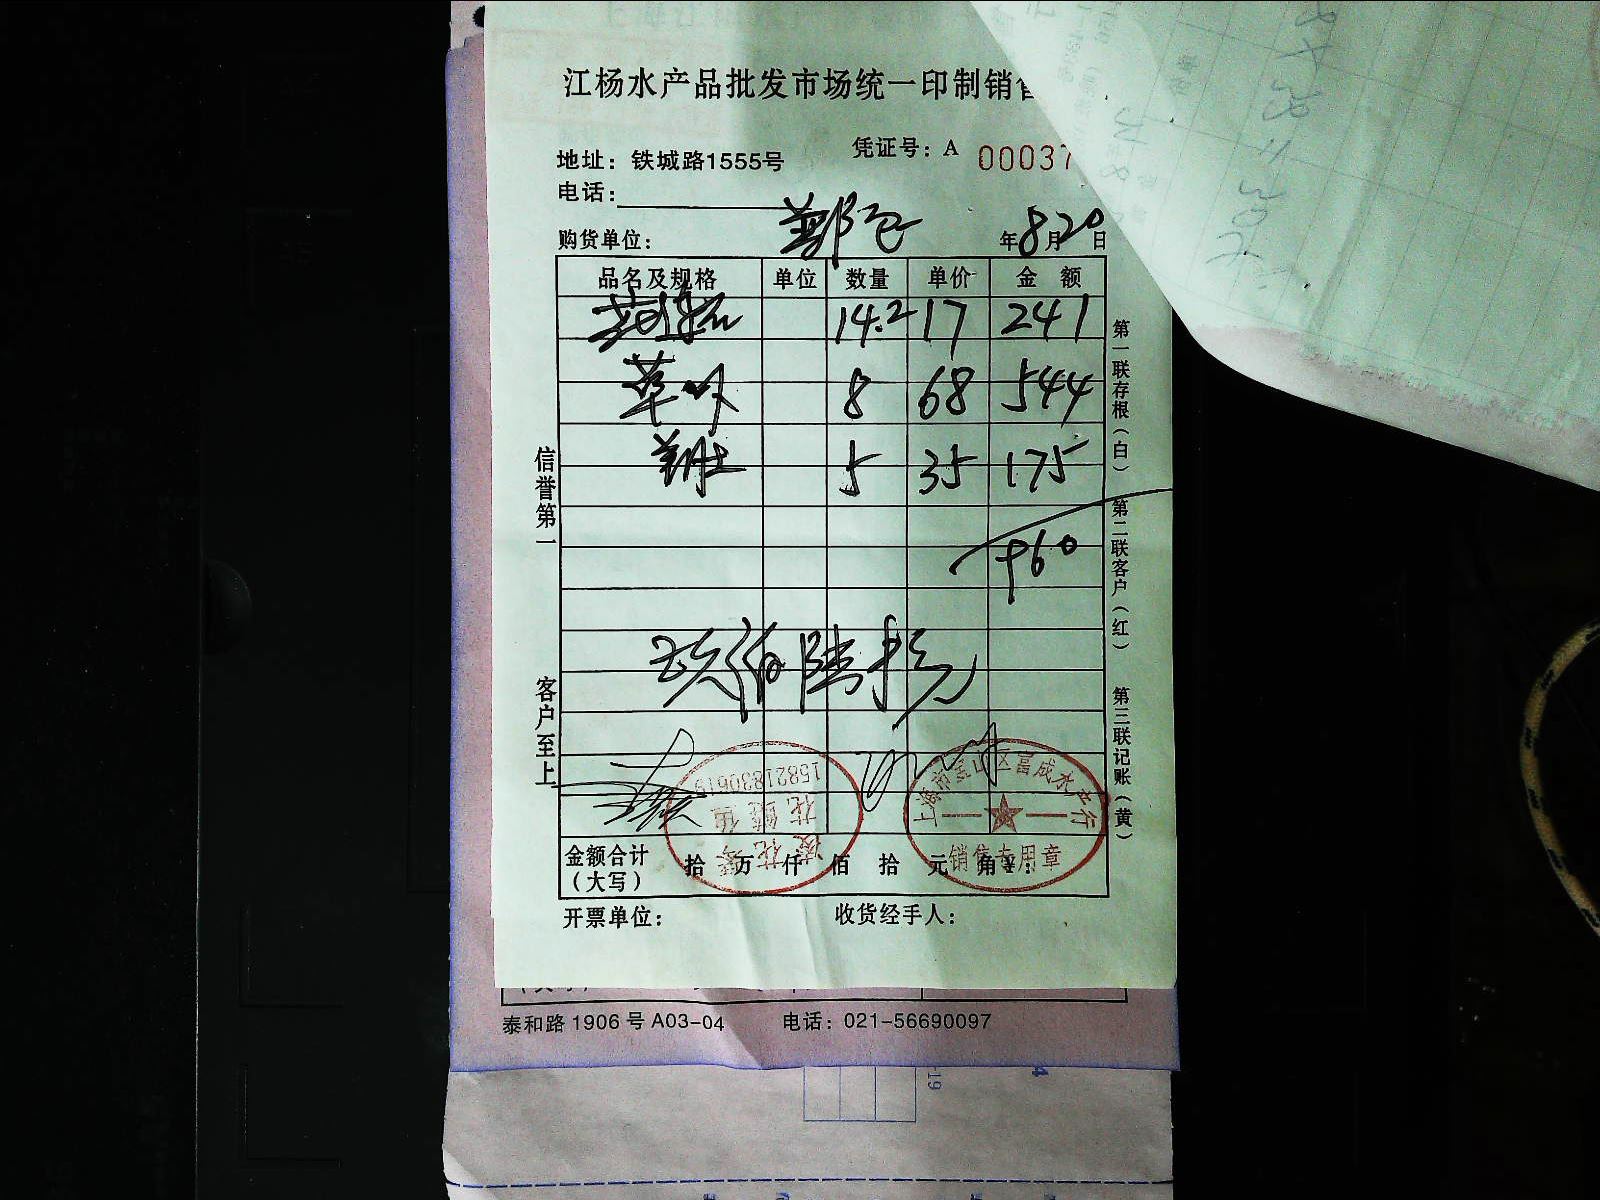 江杨水产品批发市场统一印制销售
凭证号：A 00037
地址：铁城路1555号
电话：
购货单位：
年8月20日
品名及规格 单位 数量 单价 金额
14.2 17 241
8 68 544
5 35 175
960
玖佰陆拾元
金额合计（大写） 拾 万 仟 佰 拾 元 角 ¥：
开票单位： 收货经手人：
信誉第一 客户至上
第一联存根（白） 第二联客户（红） 第三联记账（黄）
上海市宝山区富成水产行
销售专用章
15821830619
泰和路1906号A03-04 电话：021-56690097